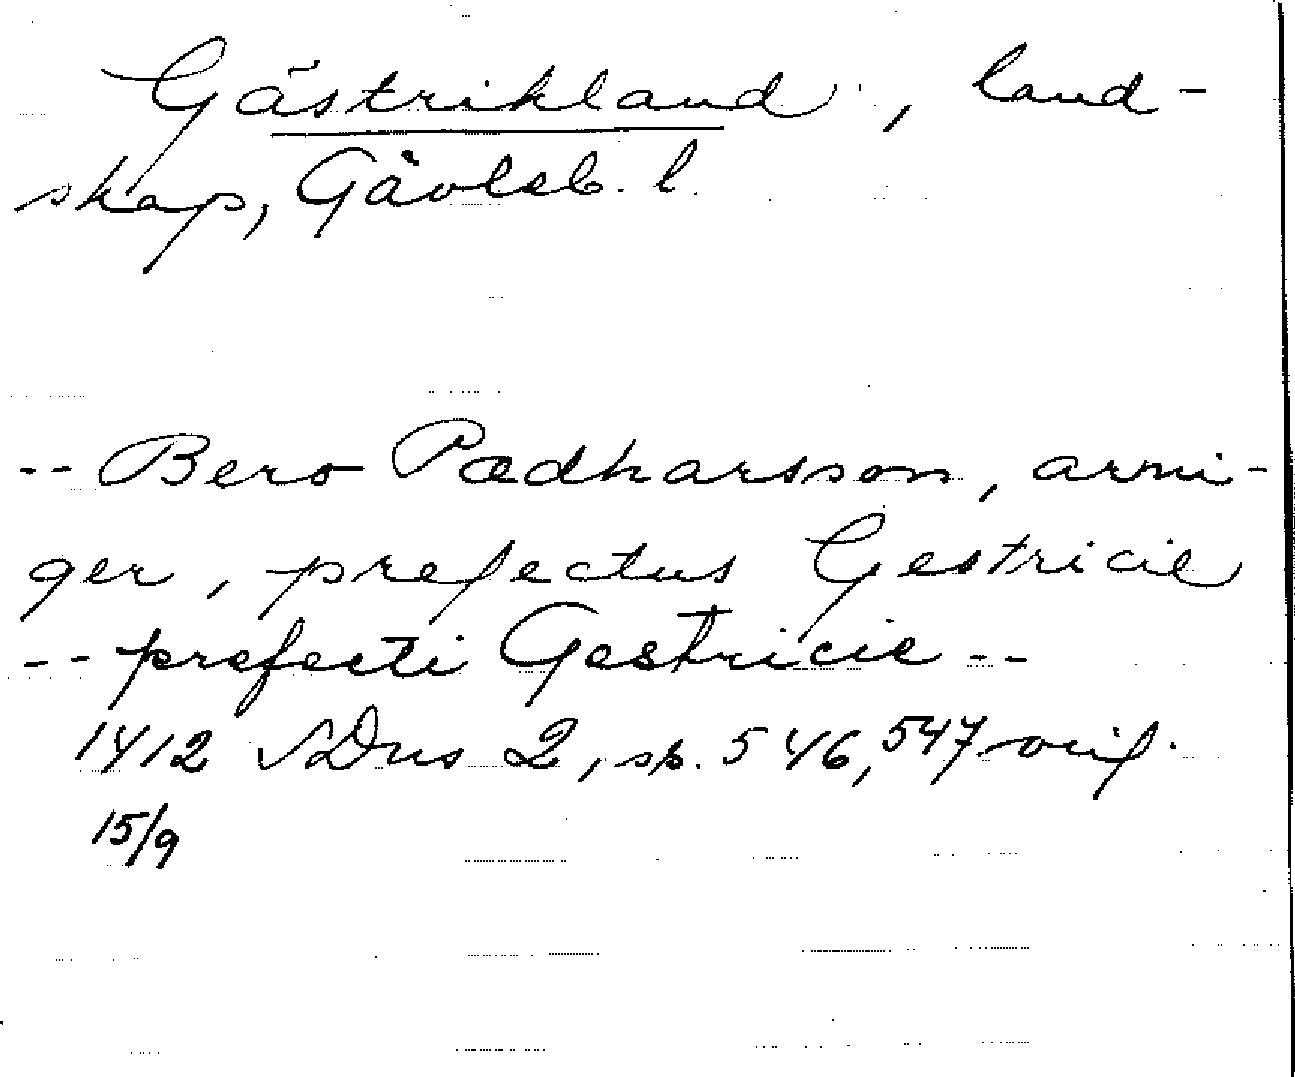 Gästrikland, land-
skap, Gävleb. l.
-- Bero Pædharsson, armi-
ger, prefectus Gestricie
-- prefecti Gestricie --
1412 SDns 2, sp. 546, 547 vid.
15/9